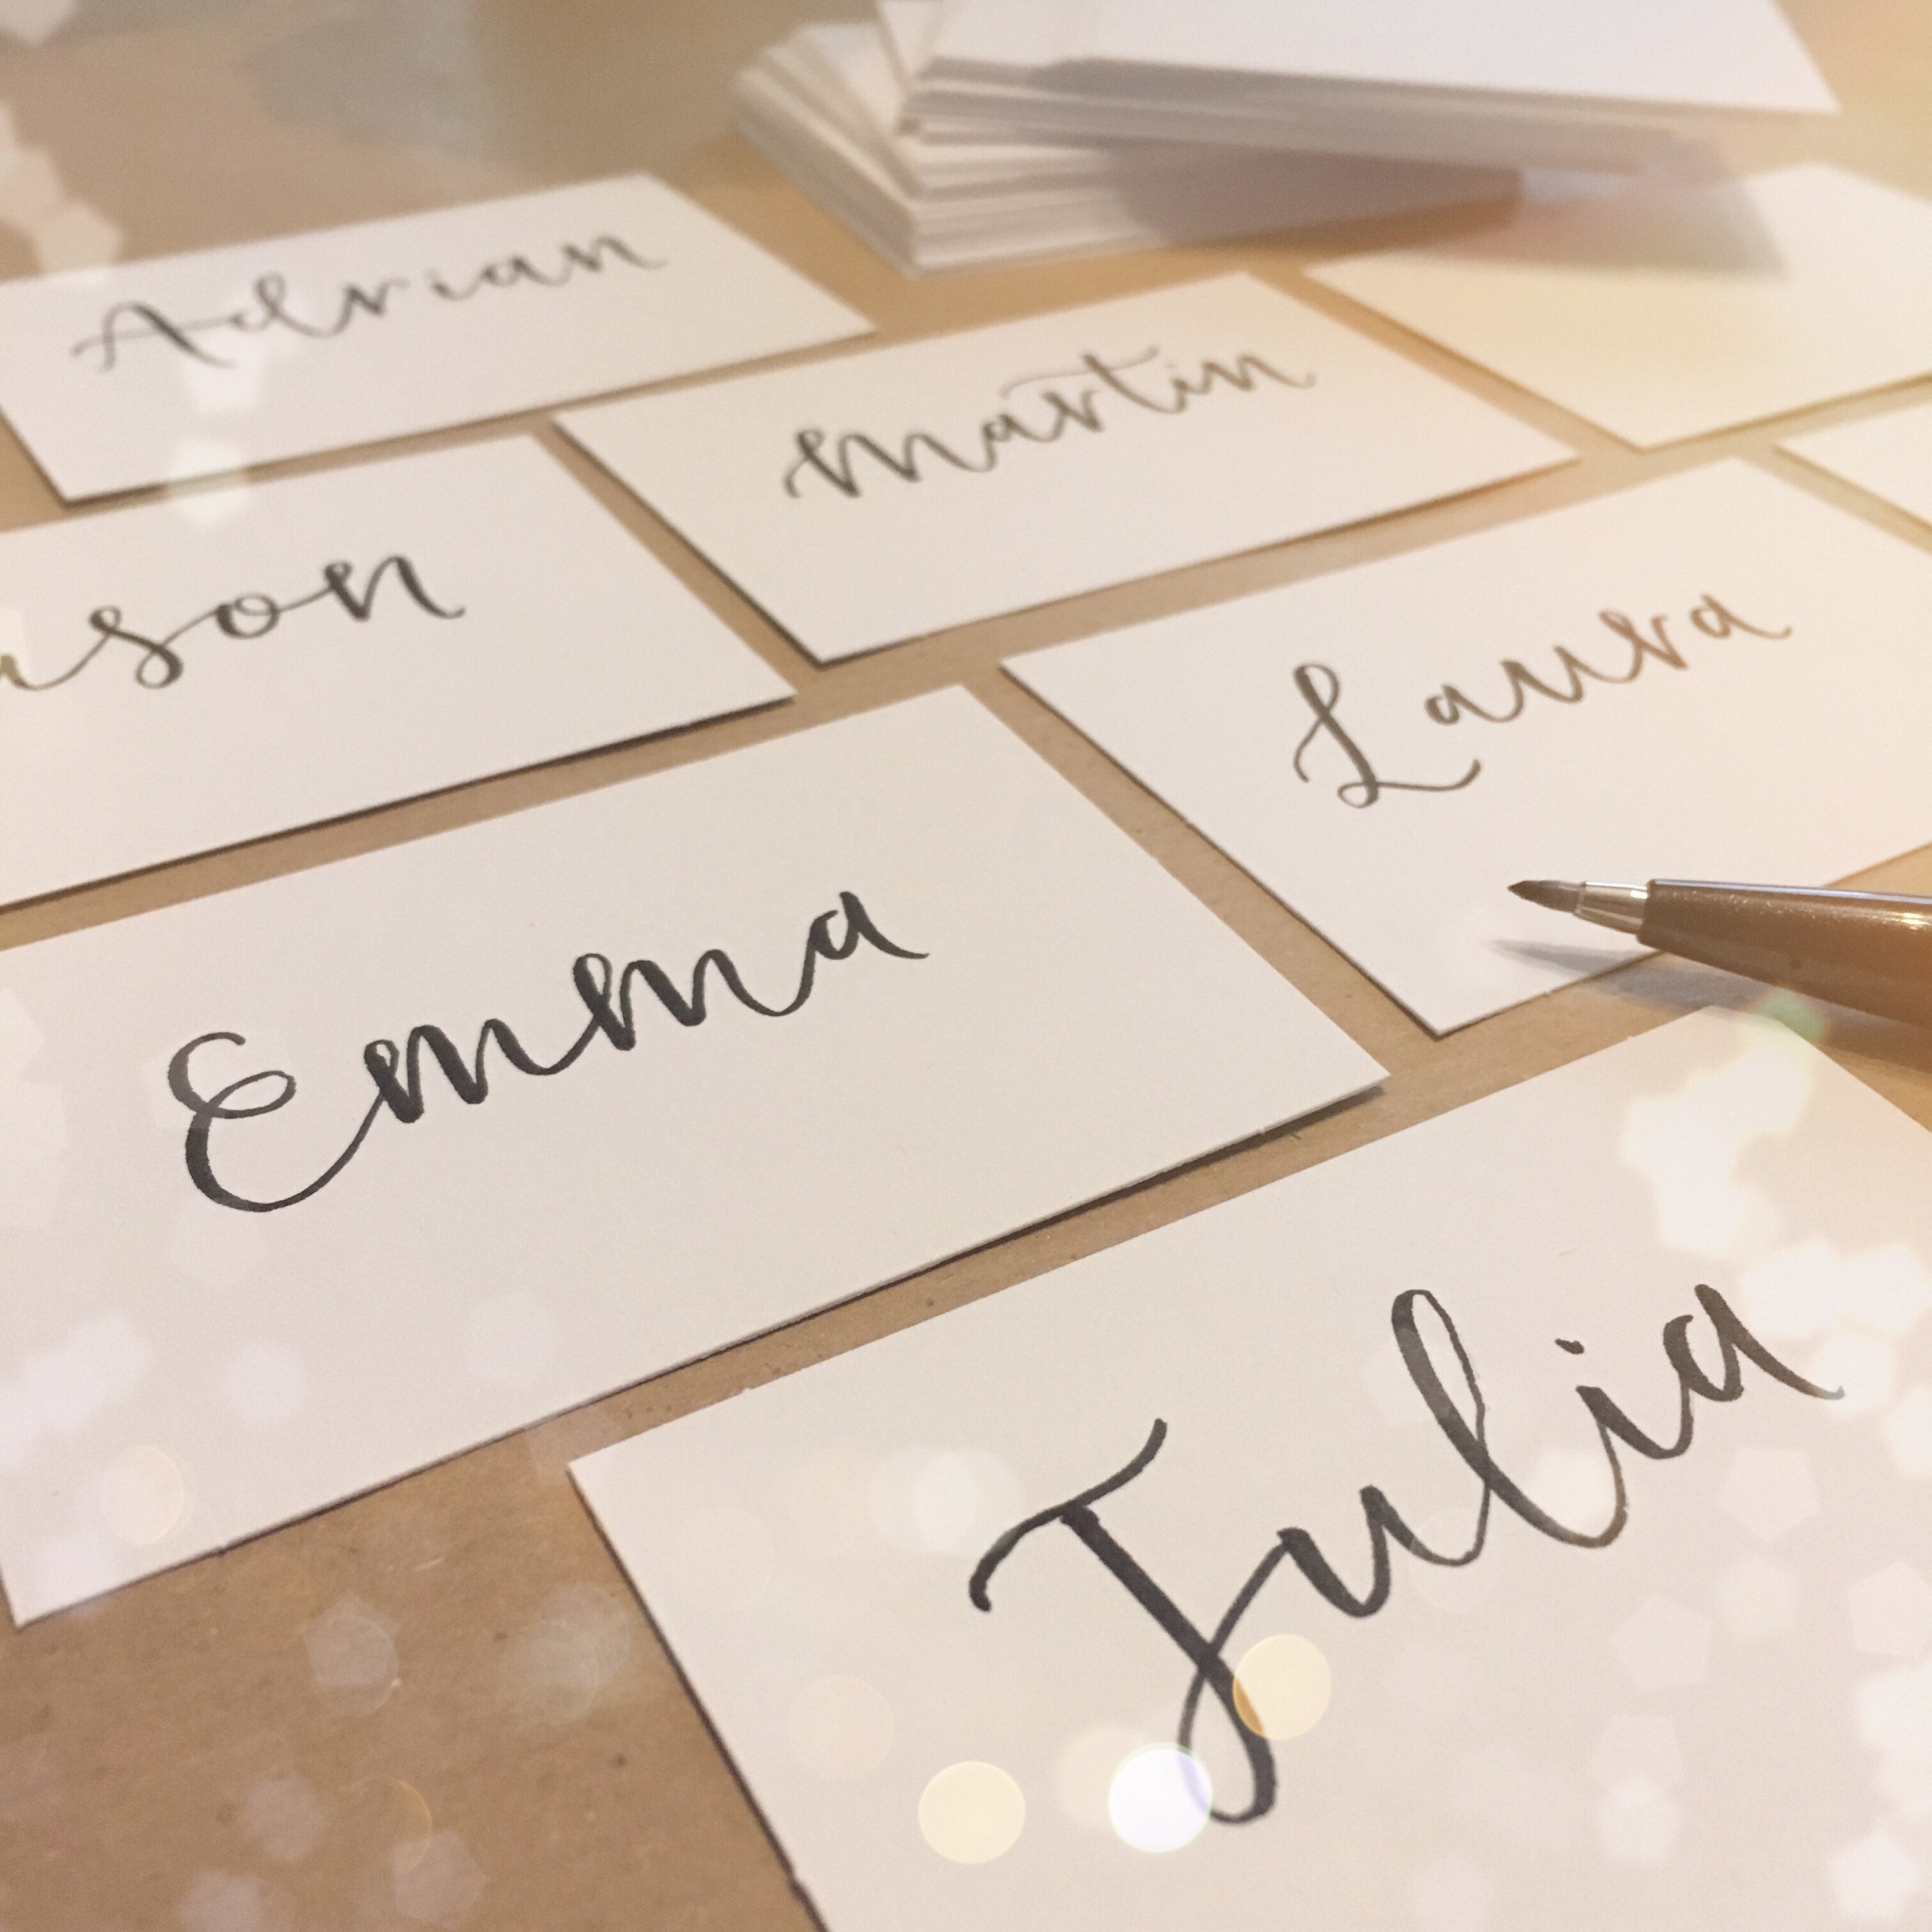 Adrian
Martin
ason
Laura
Emma
Julia